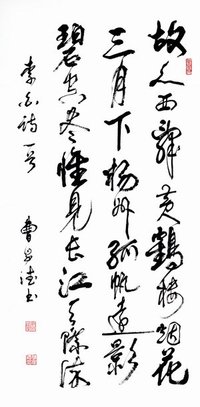 故人西辭黄鶴樓烟花
三月下揚州孤帆遠影
碧空盡惟見長江天際流
李白詩一首